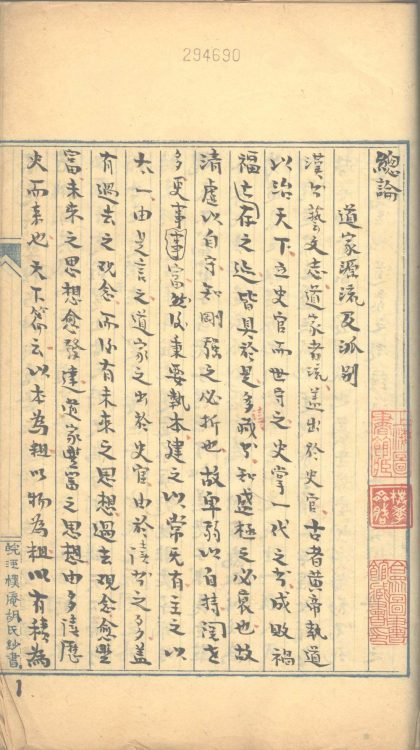 294690
總論
道家源流及派別
漢書藝文志道家者流蓋出於史官古者黃帝執道
以治天下立史官而世守之史掌一代之書成敗禍
福亡存之迹皆具於是多識書知盛極之必衰也故
清虛以自守知剛強之必折也故卑弱以自持閱世
多更事富然後秉要執本建之以常无有主之以
太一由是言之道家之出於史官由於讀書之多蓋
有過去之观念而後有未來之思想過去观念愈豐
富未來之思想愈發達道家豐富之思想由多讀歷
史而來也天下篇云以本為粗以物為粗以有積為
皖涇樸庵胡氏鈔書
1